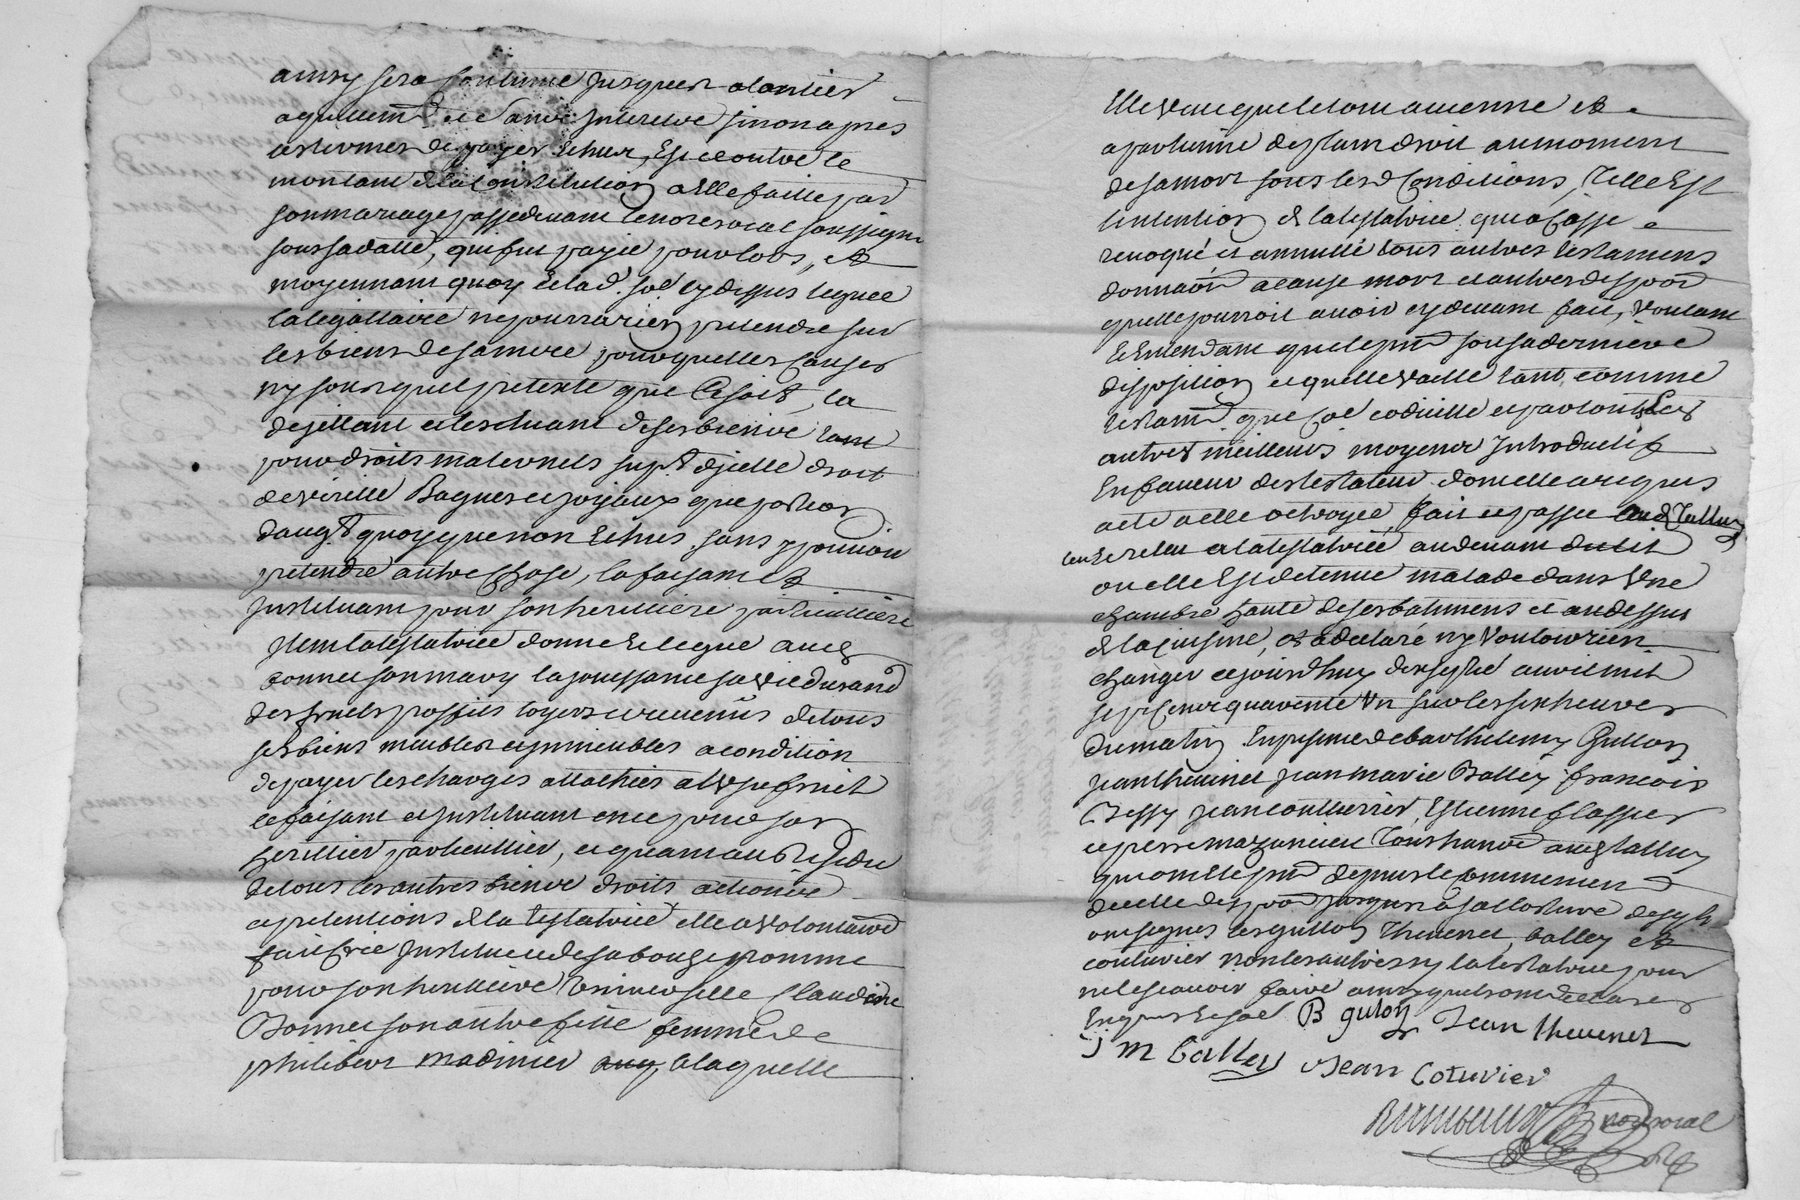 ainsy sera continué jusques a lantier
aquittemt de lad. sinon apres
les termes de payer echus, Est ce outre le
montant de la Constitution a Elle faitte par
son mariage passé devant le nore roial soussigné
sous sa datte, qui fut payée pour lors, et
moyennant quoy et lad. soe cy dessus leguée
la legattaire ne pourra rien pretendre sur
les biens de sa mere pour quelles causes
ny sous quel pretexte que ce soit, la
dejettant et excluant de ses biens tant
pour droits maternels supt d'jcelle droit
de virille Bagues et joyaux que portion
daugt quoyque non Echus sans y pouvoir
pretendre autre chose, la faisant et
jnstituant pour son heritiere particulliere
jtem la testatrice donne et legue aud
Bonnet son mary la jouissance sa vie durand
des fruits proffits loyers et revenus de tous
ses biens meubles et jmmeubles a condition
de payer les charges attachées a lusufruit
le faisant et jnstituant en ce pour son
heritier particullier, et quant au Residu
de tous les autres biens droits actions
et pretentions de la testatrice elle a volontairemt
fait crée jnstitué et de sa bouche nommé
pour son heritiere Universelle Claudine
Bonnet son autre fille femme de
philibert madinier a laquelle
Elle veut que le tout avienne et
apartienne de plain droit au moment
de sa mort sous lesd Conditions, Telle Est
lintention de la testatrice qui a Cassé
revoqué et annullé tous autres testamens
donnaõn a cause mort et autres dispoõn
quelle pourroit avoir cy devant fait, Voulant
et Entendant que le pnt soit sa derniere
disposition et quelle vaille tant comme
testamt que Coe codicille et par tous les
autres meilleurs moyens Introductif
En faveur des testateurs dont elle a requis
acte a elle octroyé, fait et passé aud Talluy
ou elle Est detenue malade dans Une
chambre haute de ses batimens et au dessus
de la cuisine, et a declaré ny vouloir rien
changer cejourdhuy dix sept avril mil
sept cent quarente Un sur les six heures
du matin En presence de barthelemy Guillon
jean thevenet jean marie Balley francois
Bessy jean couturier, Estienne flasses
et pierre mazancieu Tous habt aud talluy
qui ont été pnt depuis le Commencemt
dicelle dispoõn jusques a sa clolture desqls
ont signés lesd guillon Thevenet, balley et
couturier non les autres ny la testatrice pour
ne le scavoir faire ainsy quils ont declarés
Enquis Et soe B guion Jean thevenet
j m Balley Jean Coturier
nore roial